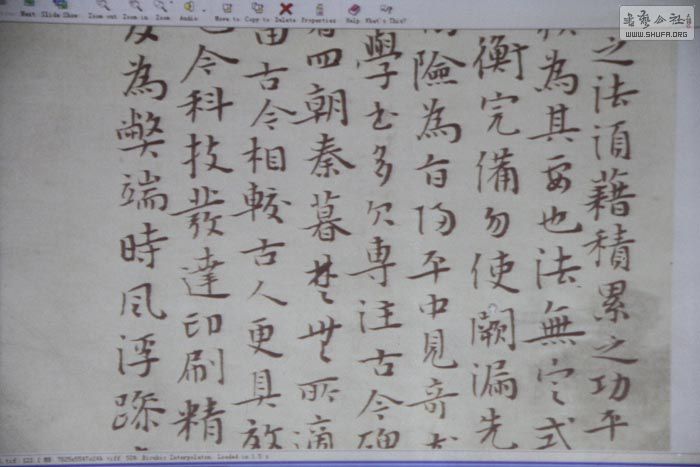 Next Slide Show Zoom out Zoom in Zoom Audio Move to Copy to Delete Properties Help What's This?
書藝公社
WWW.SHUFA.ORG
之法須藉積累之功平
為其要也法無定式
衡完備勿使闕漏先
險為 平中見奇
學书多欠専注古今
四朝秦暮楚無所適
古今相較古人更具
今科技發達印刷精
為弊端時風浮躁
Bicubic Interpolation. Loaded in 1.5 s